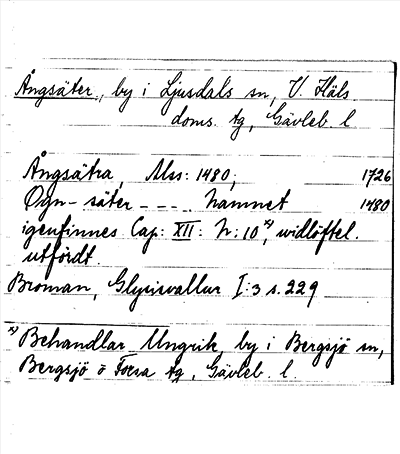 Ångsäter, by i Ljusdals sn, V. Häls.
doms. tg, Gävleb. l
Ångsätra, Mss: 1480; 1726
Ogn-säter - - - . Namnet 1480
igenfinnes Cap: XII: N: 10 x), widlöftel.
utfördt.
Broman, Glysisvallur I:3 s. 229
x) Behandlar Ungrik, by i Bergsjö sn,
Bergsjö o Forsa tg, Gävleb. l.